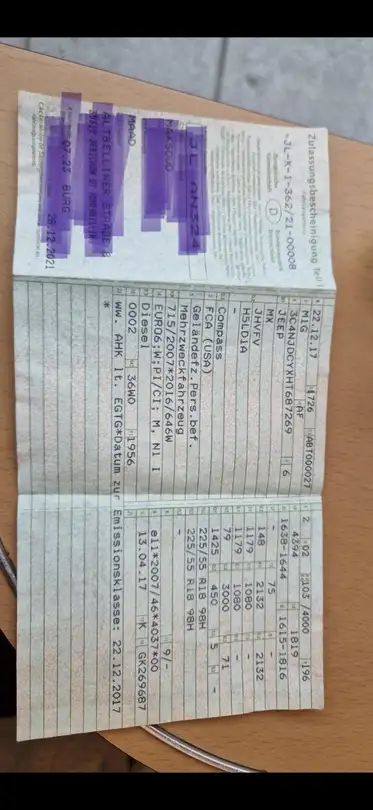 Zulassungsbescheinigung Teil I
D
-JL-K-1-362/21-00008
MAAD
07.23 BURG
28.12.2021
22.12.17 1726 ABT000027
M1G AF
3C4NJDCYXHT687269 6
JEEP
MX
JHVFV
H5LD1A
-
Compass
FCA (USA)
Geländefz.Pers.bef.
Mehrzweckfahrzeug
715/2007*2016/646W
EURO6;W;PI/CI; M, N1 I
Diesel
0002 36W0 1956
ww. AHK lt. EGTG*Datum zur Emissionsklasse: 22.12.2017
*
2 02 103 /4000 196
4394 1819
1638-1644 1615-1816
- 75 -
148 2132 2132
1179 1080 -
1179 1080 -
79 3000 71
1425 450 5 -
225/55 R18 98H
225/55 R18 98H
-
- 9/-
e11*2007/46*4037*00
13.04.17 K GK269687